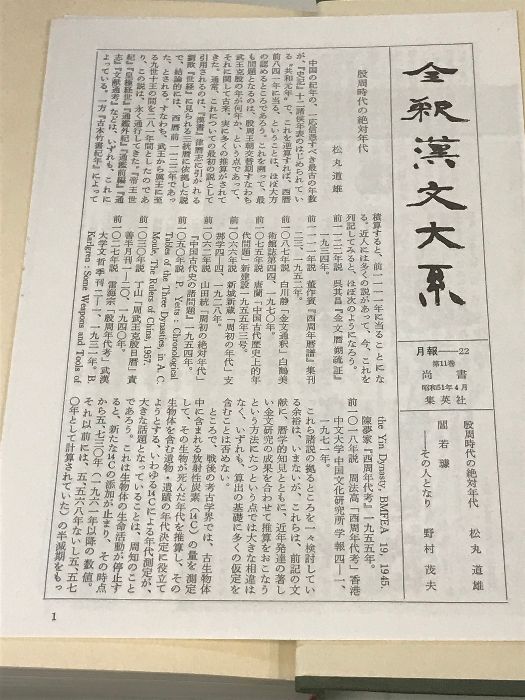 全釈漢文大系
月報―22
第11巻
尚書
昭和51年4月
集英社
殷周時代の絶対年代　松丸道雄
閻若璩
――その人となり　野村茂夫
殷周時代の絶対年代
松丸道雄
中国の紀年の、一応信憑すべき最古の年数
が、『史記』十二諸侯年表のはじめられてい
る"共和元年"で、これを逆算すれば、西暦
前八四一年に当る、ということは、ほぼ大方
の認めるところであろう。これを溯って、最
も問題となるのは、殷周王朝交替期すなわち
武王克殷の年が何年か、という点であって、
それに関して古来、実に多くの推算がされて
きた。通常、これについての最初の説として
引用されるのは、『漢書』律暦志に引かれる
劉歆『世経』に見られる三統暦に依拠した説
で、結論的には、西暦前一一二二年であっ
た、とされる。すなわち、武王から厲王に至
る九世十王の間を二八一年間としたのであ
り、この説は、永く通行してきた。『帝王世
紀』『皇極経世』『通鑑外紀』『通鑑前編』『通
志』『文献通考』などは、いずれも、これに
よっている。一方『古本竹書紀年』によって
積算すると、前一一一一年に当ることにな
る。近人には多くの説があって、今、これを
列記してみると、ほぼ次のようになろう。
前一一二二年説　呉其昌『金文暦朔疏証』
一九三四年。
前一一一一年説　董作賓「西周年暦譜」集刊
二三、一九五二年。
前一〇八七年説　白川静「金文通釈」白鶴美
術館誌第四四、一九七〇年。
前一〇七五年説　唐蘭「中国古代歴史上的年
代問題」新建設一九五五年三号。
前一〇六六年説　新城新蔵「周初の年代」支
那学四―四、一九二八年。
前一〇六二年説　山田統「周初の絶対年代」
『中国古代史の諸問題』一九五四年。
前一〇五〇年説　P. Yetts : Chronological
Tables of the Three Dynasties, in A. C.
Moule, The Rulers of China, 1957.
前一〇三〇年説　丁山「周武王克殷日暦」責
善半月刊一―二〇、一九四〇年。
前一〇二七年説　雷庭宗「殷周年代考」武漢
大学文哲季刊二―一、一九三一年。B.
Karlgren : Some Weapons and Tools of
the Yin Dynasty, BMFEA 19, 1945.
陳夢家『西周年代考』一九五五年。
前一〇一八年説　周法高「西周年代考」香港
中文大学中国文化研究所学報四―一、
一九七一年。
これら諸説の拠るところを一々検討してい
る余裕は、いまないが、これらは、前記の文
献に、暦学的知見とともに、近年発達の著し
い金文研究の成果を合わせて推算をおこなう
という方法にたつという点では大きな相違は
なく、いずれも、算出の基礎に多くの仮定を
含むことは否めない。
ところで、戦後の考古学界では、古生物体
中に含まれる放射性炭素(¹⁴C)の量を測定
して、その生物が死んだ年代を推算し、その
生物体を含む遺物・遺蹟の年代決定に役立て
ようとする、いわゆる¹⁴Cによる年代測定が、
大きな話題となっていることは、周知のこと
であろう。これは生物体の生命活動が停止す
ると、新たな¹⁴Cの添加が止まり、その時点
から五、七三〇年(一九六一年以降の数値。
それ以前には、五、五六八年ないし五、五七
〇年として計算されていた)の半減期をもっ
1